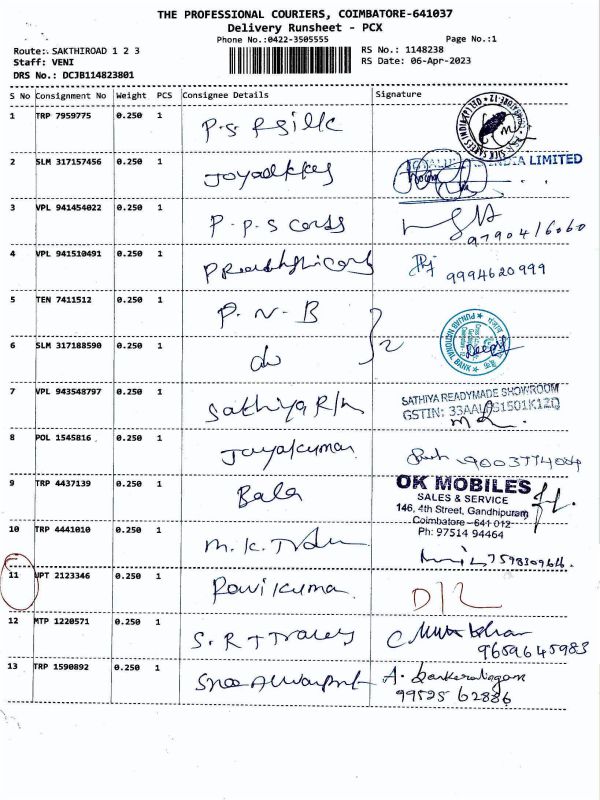 THE PROFESSIONAL COURIERS, COIMBATORE-641037
Delivery Runsheet - PCX
Phone No.:0422-3505555 Page No.:1
Route:. SAKTHIROAD 1 2 3 RS No.: 1148238
Staff: VENI RS Date: 06-Apr-2023
DRS No.: DCJB114823801
S No Consignment No Weight PCS Consignee Details Signature
1 TRP 7959775 0.250 1 P.S.R silk
2 SLM 317157456 0.250 1 INDIA LIMITED
3 VPL 941454022 0.250 1 P.P.S cards
9790416060
4 VPL 941510491 0.250 1
9994620999
5 TEN 7411512 0.250 1 P.N.B
PUNJAB NATIONAL BANK
6 SLM 317188590 0.250 1 do 2
7 VPL 943548797 0.250 1 Sathiya R/m SATHIYA READYMADE SHOWROOM
8 POL 1545816 0.250 1 Jayakumar
9 TRP 4437139 0.250 1 Bala OK MOBILES
SALES & SERVICE
146, 4th Street, Gandhipuram
Coimbatore - 641 012
Ph: 97514 94464
10 TRP 4441010 0.250 1 M.K.
11 UPT 2123346 0.250 1 Ravikumar D/L
12 MTP 1220571 0.250 1 S.R.T
9659645983
13 TRP 1590892 0.250 1 A.
99525 62886